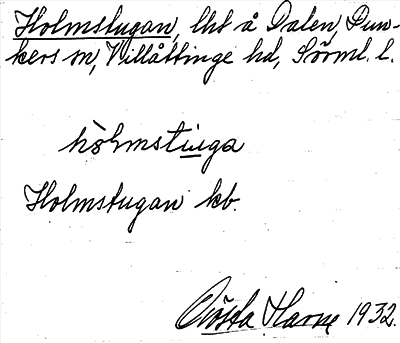 Holmstugan, lht å Dalen, Dun-
kers sn, Villåttinge hd, Sörml. l.
hòlmstu̲ga
Holmstugan kb.
Gösta Harne 1932.